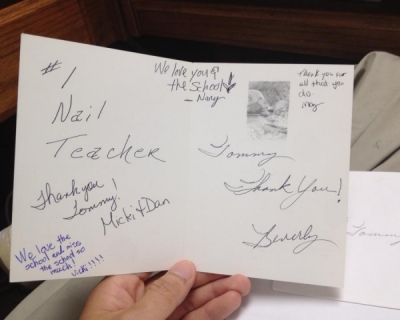 #1
Nail
Teacher
Thank you
Tommy!
Micki & Dan
We love the
school and miss
the school so
much!
Vicki!!!!
We love you &
the School
- Nancy
Thank you for
all that you
do.
Tommy
Thank You!
Beverly
Tommy